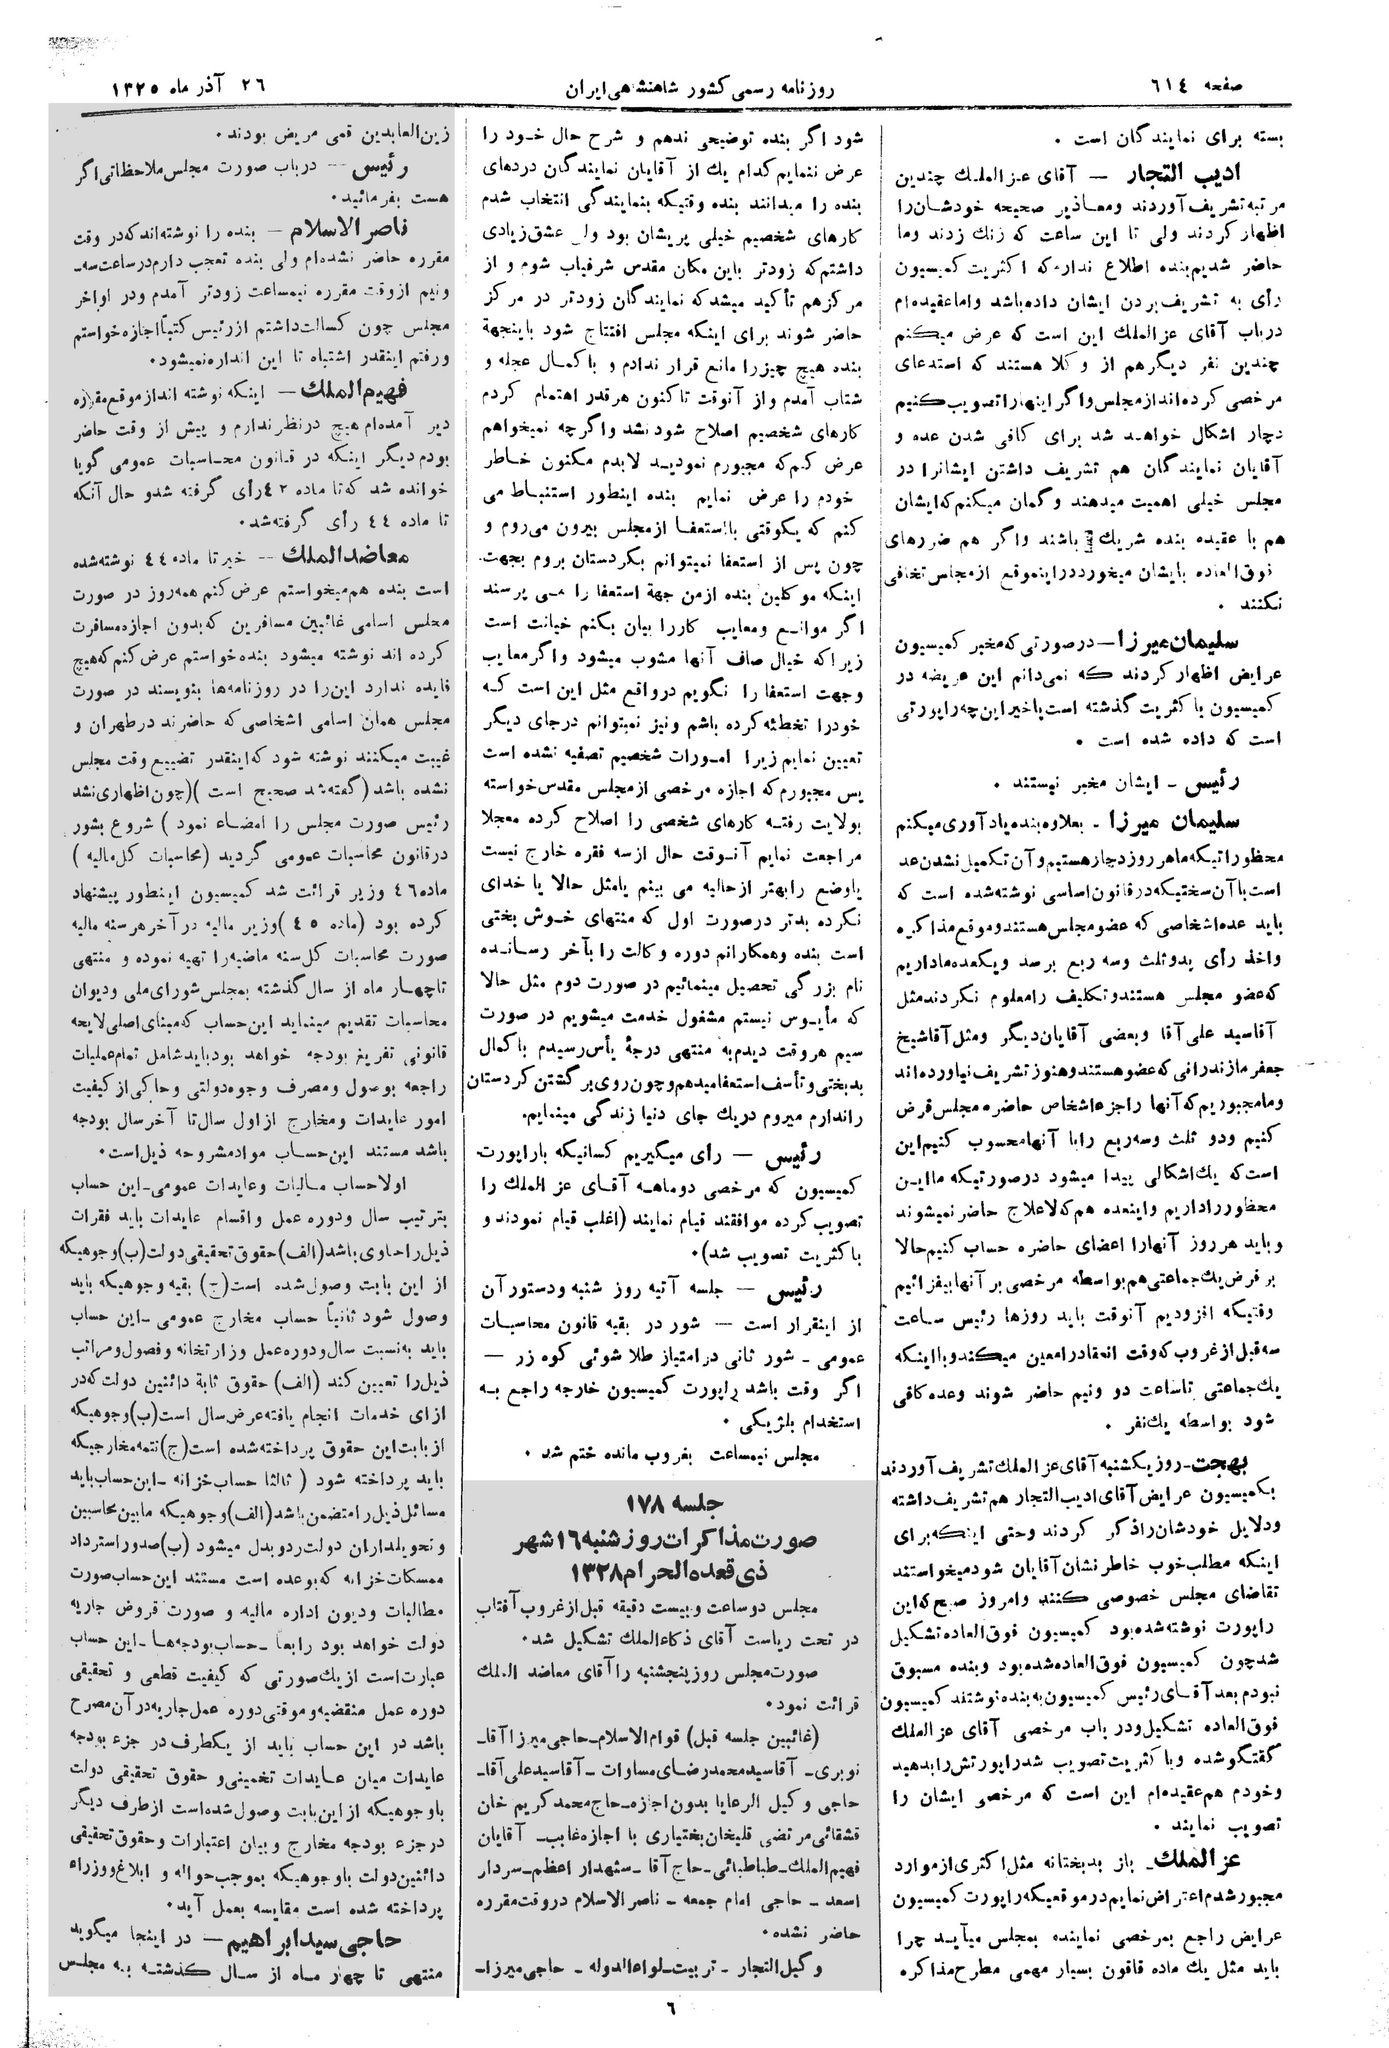 صفحه ٦١٤
روزنامه رسمی کشور شاهنشاهی ایران
٢٦ آذر ماه ١٣٢٥
بسته برای نمایندگان است .
ادیب التجار — آقای عز الملك چندین
مرتبه تشریف آوردند ومعاذیر صحیحه خودشان را
اظهار کردند ولی تا این ساعت که زنك زدند وما
حاضر شدیم بنده اطلاع ندارم که اکثریت کمیسیون
رأی به تشریف بردن ایشان داده باشد واما عقیده ام
درباب آقای عز الملك این است که عرض میکنم
چندین نفر دیگر هم از وکلا هستند که استدعای
مرخصی کرده اند از مجلس واگر اینهارا تصویب کنیم
دچار اشکال خواهد شد برای کافی شدن عده و
آقایان نمایندگان هم تشریف داشتن ایشانرا در
مجلس خیلی اهمیت میدهند وگمان میکنم که ایشان
هم با عقیده بنده شریك باشند واگر هم ضررهای
فوق العاده بایشان میخورد در اینموقع از مجلس تخلفی
نکنند .
سلیمان میرزا — درصورتی که مخبر کمیسیون
عرایض اظهار کردند که نمی دانم این عریضه در
کمیسیون باکثریت گذشته است یاخیر این چه راپورتی
است که داده شده است .
رئیس - ایشان مخبر نیستند .
سلیمان میرزا - بعلاوه بنده یاد آوری میکنم
محظوراتیکه ما هر روز دچار هستیم و آن تکمیل نشدن عد
است با آن سختیکه در قانون اساسی نوشته شده است که
باید عده اشخاصی که عضو مجلس هستند و موقع مذاکره
واخذ رأی بدو ثلث وسه ربع برسد ویکعده ماداریم
که عضو مجلس هستند و تکلیف را معلوم نکردند مثل
آقاسید علی آقا وبعضی آقایان دیگر ومثل آقاشیخ
جعفر مازندرانی که عضو هستند و هنوز تشریف نیاورده اند
وما مجبوریم که آنها را جزء اشخاص حاضره مجلس فرض
کنیم ودو ثلث وسه ربع را با آنها محسوب کنیم این
است که یك اشکالی پیدا میشود درصورتیکه ما این
محظور را داریم واینعده هم که لاعلاج حاضر نمیشوند
و باید هر روز آنهارا اعضای حاضره حساب کنیم حالا
بر فرض یك جماعتی هم بواسطه مرخصی بر آنها بیفزائیم
وقتیکه افزودیم آنوقت باید روزها رئیس ساعت
سه قبل از غروب که وقت انعقاد را معین میکند و با اینکه
یك جماعتی تا ساعت دو ونیم حاضر شوند وعده کافی
شود بواسطه یك نفر .
بهجت - روز یکشنبه آقای عز الملك تشریف آوردند
بکمیسیون عرایض آقای ادیب التجار هم تشریف داشته
ودلایل خودشان را ذکر کردند وحتی اینکه برای
اینکه مطلب خوب خاطر نشان آقایان شود میخواستند
تقاضای مجلس خصوصی کنند وامروز صبح که این
راپورت نوشته شده بود کمیسیون فوق العاده تشکیل
شد چون کمیسیون فوق العاده شده بود وبنده مسبوق
نبودم بعد آقای رئیس کمیسیون به بنده نوشتند کمیسیون
فوق العاده تشکیل ودر باب مرخصی آقای عز الملك
گفتگو شده وبا کثریت تصویب شد راپورتش را بدهید
وخودم هم عقیده ام این است که مرخصی ایشان را
تصویب نمایند .
عز الملك - باز بدبختانه مثل اکثری از موارد
مجبور شدم اعتراض نمایم درموقعیکه راپورت کمیسیون
عرایض راجع بمرخصی نماینده بمجلس میآید چرا
باید مثل یك ماده قانون بسیار مهمی مطرح مذاکره
شود اگر بنده توضیحی ندهم و شرح حال خود را
عرض ننمایم کدام یك از آقایان نمایندگان دردهای
بنده را میدانند بنده وقتیکه بنمایندگی انتخاب شدم
کارهای شخصیم خیلی پریشان بود ولی عشق زیادی
داشتم که زودتر باین مکان مقدس شرفیاب شوم و از
مرکز هم تأکید میشد که نمایندگان زودتر در مرکز
حاضر شوند برای اینکه مجلس افتتاح شود باینجهة
بنده هیچ چیز را مانع قرار ندادم و باکمال عجله و
شتاب آمدم واز آنوقت تاکنون هرقدر اهتمام کردم
کارهای شخصیم اصلاح شود نشد واگرچه نمیخواهم
عرض کنم که مجبورم نمودید لابدم مکنون خاطر
خودم را عرض نمایم بنده اینطور استنباط می
کنم که یکوقتی با استعفا از مجلس بیرون می روم و
چون پس از استعفا نمیتوانم بکردستان بروم بجهت
اینکه موکلین بنده از من جهة استعفا را می پرسند
اگر موانع ومعایب کار را بیان بکنم خیانت است
زیرا که خیال صاف آنها مشوب میشود واگر معایب
وجهت استعفا را نگویم درواقع مثل این است که
خودرا تخطئه کرده باشم ونیز نمیتوانم درجای دیگر
تعیین نمایم زیرا امورات شخصیم تصفیه نشده است
پس مجبورم که اجازه مرخصی از مجلس مقدس خواسته
بولایت رفته کارهای شخصی را اصلاح کرده معجلا
مراجعت نمایم آنوقت حال از سه فقره خارج نیست
یا وضع را بهتر از حالیه می بینم یا مثل حالا یا خدای
نکرده بدتر درصورت اول که منتهای خوش بختی
است بنده وهمکارانم دوره وکالت را بآخر رسانده
نام بزرگی تحصیل مینمائیم در صورت دوم مثل حالا
که مأیوس نیستم مشغول خدمت میشویم در صورت
سیم هروقت دیدم به منتهی درجهٔ یأس رسیدم باکمال
بدبختی وتأسف استعفا میدهم و چون روی برگشتن کردستان
را ندارم میروم دریك جای دنیا زندگی مینمایم.
رئیس — رأی میگیریم کسانیکه باراپورت
کمیسیون که مرخصی دوماهه آقای عز الملك را
تصویب کرده موافقند قیام نمایند (اغلب قیام نمودند و
باکثریت تصویب شد).
رئیس — جلسه آتیه روز شنبه ودستور آن
از اینقرار است — شور در بقیه قانون محاسبات
عمومی - شور ثانی در امتیاز طلا شوئی کوه زر —
اگر وقت باشد راپورت کمیسیون خارجه راجع به
استخدام بلژیکی .
مجلس نیمساعت بغروب مانده ختم شد .
جلسه ١٧٨
صورت مذاکرات روز شنبه ١٦ شهر
ذی قعده الحرام ١٣٢٨
مجلس دو ساعت و بیست دقیقه قبل از غروب آفتاب
در تحت ریاست آقای ذکاء الملك تشکیل شد.
صورت مجلس روز پنجشنبه را آقای معاضد الملك
قرائت نمود.
(غائبین جلسه قبل) قوام الاسلام - حاجی میرزا آقا -
نوبری - آقاسید محمد رضای مساوات - آقاسید علی آقا -
حاجی وکیل الرعایا بدون اجازه - حاج محمد کریم خان
قشقائی مرتضی قلیخان بختیاری با اجازه غایب - آقایان
فهیم الملك - طباطبائی - حاج آقا - سپهدار اعظم - سردار
اسعد - حاجی امام جمعه - ناصر الاسلام در وقت مقرره
حاضر نشده.
وکیل التجار - تربیت - لواء الدوله - حاجی میرزا -
زین العابدین قمی مریض بودند.
رئیس — درباب صورت مجلس ملاحظاتی اگر
هست بفرمائید.
ناصر الاسلام — بنده را نوشته اند که در وقت
مقرره حاضر نشده ام ولی بنده تعجب دارم در ساعت سه -
ونیم از وقت مقرره نیمساعت زودتر آمدم ودر اواخر
مجلس چون کسالت داشتم از رئیس کتباً اجازه خواستم
ورفتم اینقدر اشتباه تا این اندازه نمیشود.
فهیم الملك — اینکه نوشته اند از موقع مقرره
دیر آمده ام هیچ در نظر ندارم و پیش از وقت حاضر
بودم دیگر اینکه در قانون محاسبات عمومی گویا
خوانده شد که تا ماده ٤٢ رأی گرفته شد و حال آنکه
تا ماده ٤٤ رأی گرفته شد.
معاضد الملك — خیر تا ماده ٤٤ نوشته شده
است بنده هم میخواستم عرض کنم همه روز در صورت
مجلس اسامی غائبین مسافرین که بدون اجازه مسافرت
کرده اند نوشته میشود بنده خواستم عرض کنم که هیچ
فایده ندارد این را در روزنامه ها بنویسند در صورت
مجلس همان اسامی اشخاصی که حاضرند در طهران و
غیبت میکنند نوشته شود که اینقدر تضییع وقت مجلس
نشده باشد (گفته شد صحیح است) (چون اظهاری نشد
رئیس صورت مجلس را امضاء نمود) شروع بشور
در قانون محاسبات عمومی گردید (محاسبات کل مالیه)
ماده ٤٦ وزیر قرائت شد کمیسیون اینطور پیشنهاد
کرده بود (ماده ٤٥) وزیر مالیه در آخر هر سنه مالیه
صورت محاسبات کل سنه ماضیه را تهیه نموده و منتهی
تا چهار ماه از سال گذشته بمجلس شورای ملی ودیوان
محاسبات تقدیم مینماید این حساب که مبنای اصلی لایحه
قانونی تفریغ بودجه خواهد بود باید شامل تمام عملیات
راجعه بوصول ومصرف وجوه دولتی و حاکی از کیفیت
امور عایدات ومخارج از اول سال تا آخر سال بودجه
باشد مستند این حساب مواد مشروحه ذیل است.
اولا حساب مالیات وعایدات عمومی - این حساب
بترتیب سال ودوره عمل واقسام عایدات باید فقرات
ذیل را حاوی باشد (الف) حقوق تحقیقی دولت (ب) وجوهیکه
از این بابت وصول شده است (ج) بقیه وجوهیکه باید
وصول شود ثانیاً حساب مخارج عمومی - این حساب
باید به نسبت سال و دوره عمل وزارتخانه وفصول ومراتب
ذیل را تعیین کند (الف) حقوق ثابة دائنین دولت که در
ازای خدمات انجام یافته عرض سال است (ب) وجوهیکه
از بابت این حقوق پرداخته شده است (ج) تتمه مخارجیکه
باید پرداخته شود (ثالثا حساب خزانه - این حساب باید
مسائل ذیل را متضمن باشد (الف) وجوهیکه مابین محاسبین
و تحویلداران دولت ردوبدل میشود (ب) صدور استرداد
ممسکات خزانه که بوعده است مستند این حساب صورت
مطالبات ودیون اداره مالیه و صورت قروض جاریه
دولت خواهد بود رابعا - حساب بودجه ها - این حساب
عبارت است از یك صورتی که کیفیت قطعی و تحقیقی
دوره عمل منقضیه وموقتی دوره عمل جاریه در آن مصرح
باشد در این حساب باید از یکطرف در جزء بودجه
عایدات میان عایدات تخمینی و حقوق تحقیقی دولت
با وجوهیکه از این بابت وصول شده است از طرف دیگر
در جزء بودجه مخارج و بیان اعتبارات وحقوق تحقیقی
دائنین دولت با وجوهیکه بموجب حواله و ابلاغ وزراء
پرداخته شده است مقایسه بعمل آید.
حاجی سید ابراهیم — در اینجا میگوید
منتهی تا چهار ماه از سال گذشته به مجلس
٦